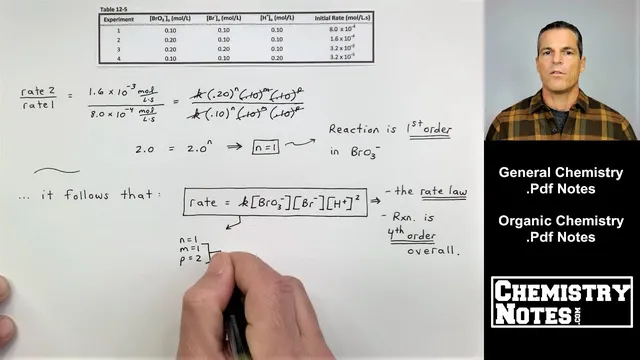 Table 12-5
Experiment [BrO₃⁻]₀ (mol/L) [Br⁻]₀ (mol/L) [H⁺]₀ (mol/L) Initial Rate (mol/L.s)
1 0.10 0.10 0.10 8.0 x 10⁻⁴
2 0.20 0.10 0.10 1.6 x 10⁻³
3 0.20 0.20 0.10 3.2 x 10⁻³
4 0.10 0.10 0.20 3.2 x 10⁻³
rate 2 / rate 1 = 1.6 x 10⁻³ mol/L·s / 8.0 x 10⁻⁴ mol/L·s = k(.20)ⁿ(.10)ᵐ(.10)ᵖ / k(.10)ⁿ(.10)ᵐ(.10)ᵖ
2.0 = 2.0ⁿ ⇒ n=1
Reaction is 1st order
in BrO₃⁻
... it follows that:
rate = k[BrO₃⁻][Br⁻][H⁺]² ⇒
- the rate law
- Rxn. is
4th order
overall.
n=1
m=1
p=2
General Chemistry
.Pdf Notes
Organic Chemistry
.Pdf Notes
CHEMISTRY
NOTES.COM